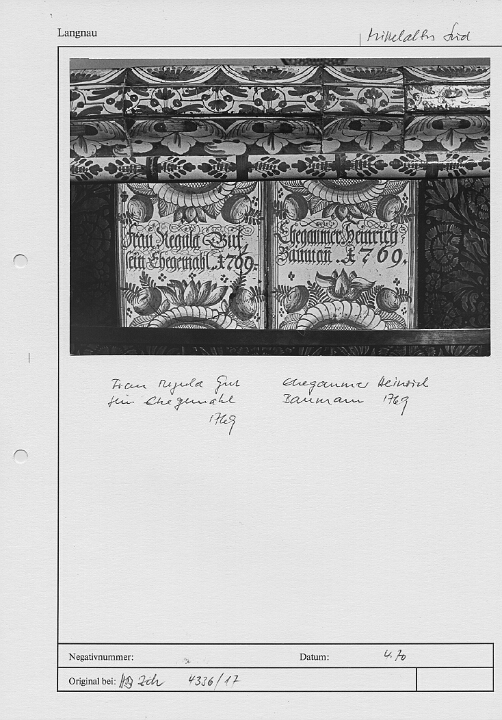 Langnau
Mittelalter Süd
Frau Regula Gut
sein Ehegemahl. 1769.
Ehegaumer Heinrich
Baumañ. 1769.
Frau Regula Gut
sein Ehegemahl
1769
Ehegaumer Heinrich
Baumann 1769
Negativnummer:
Datum: 4.70
Original bei: 4336/17